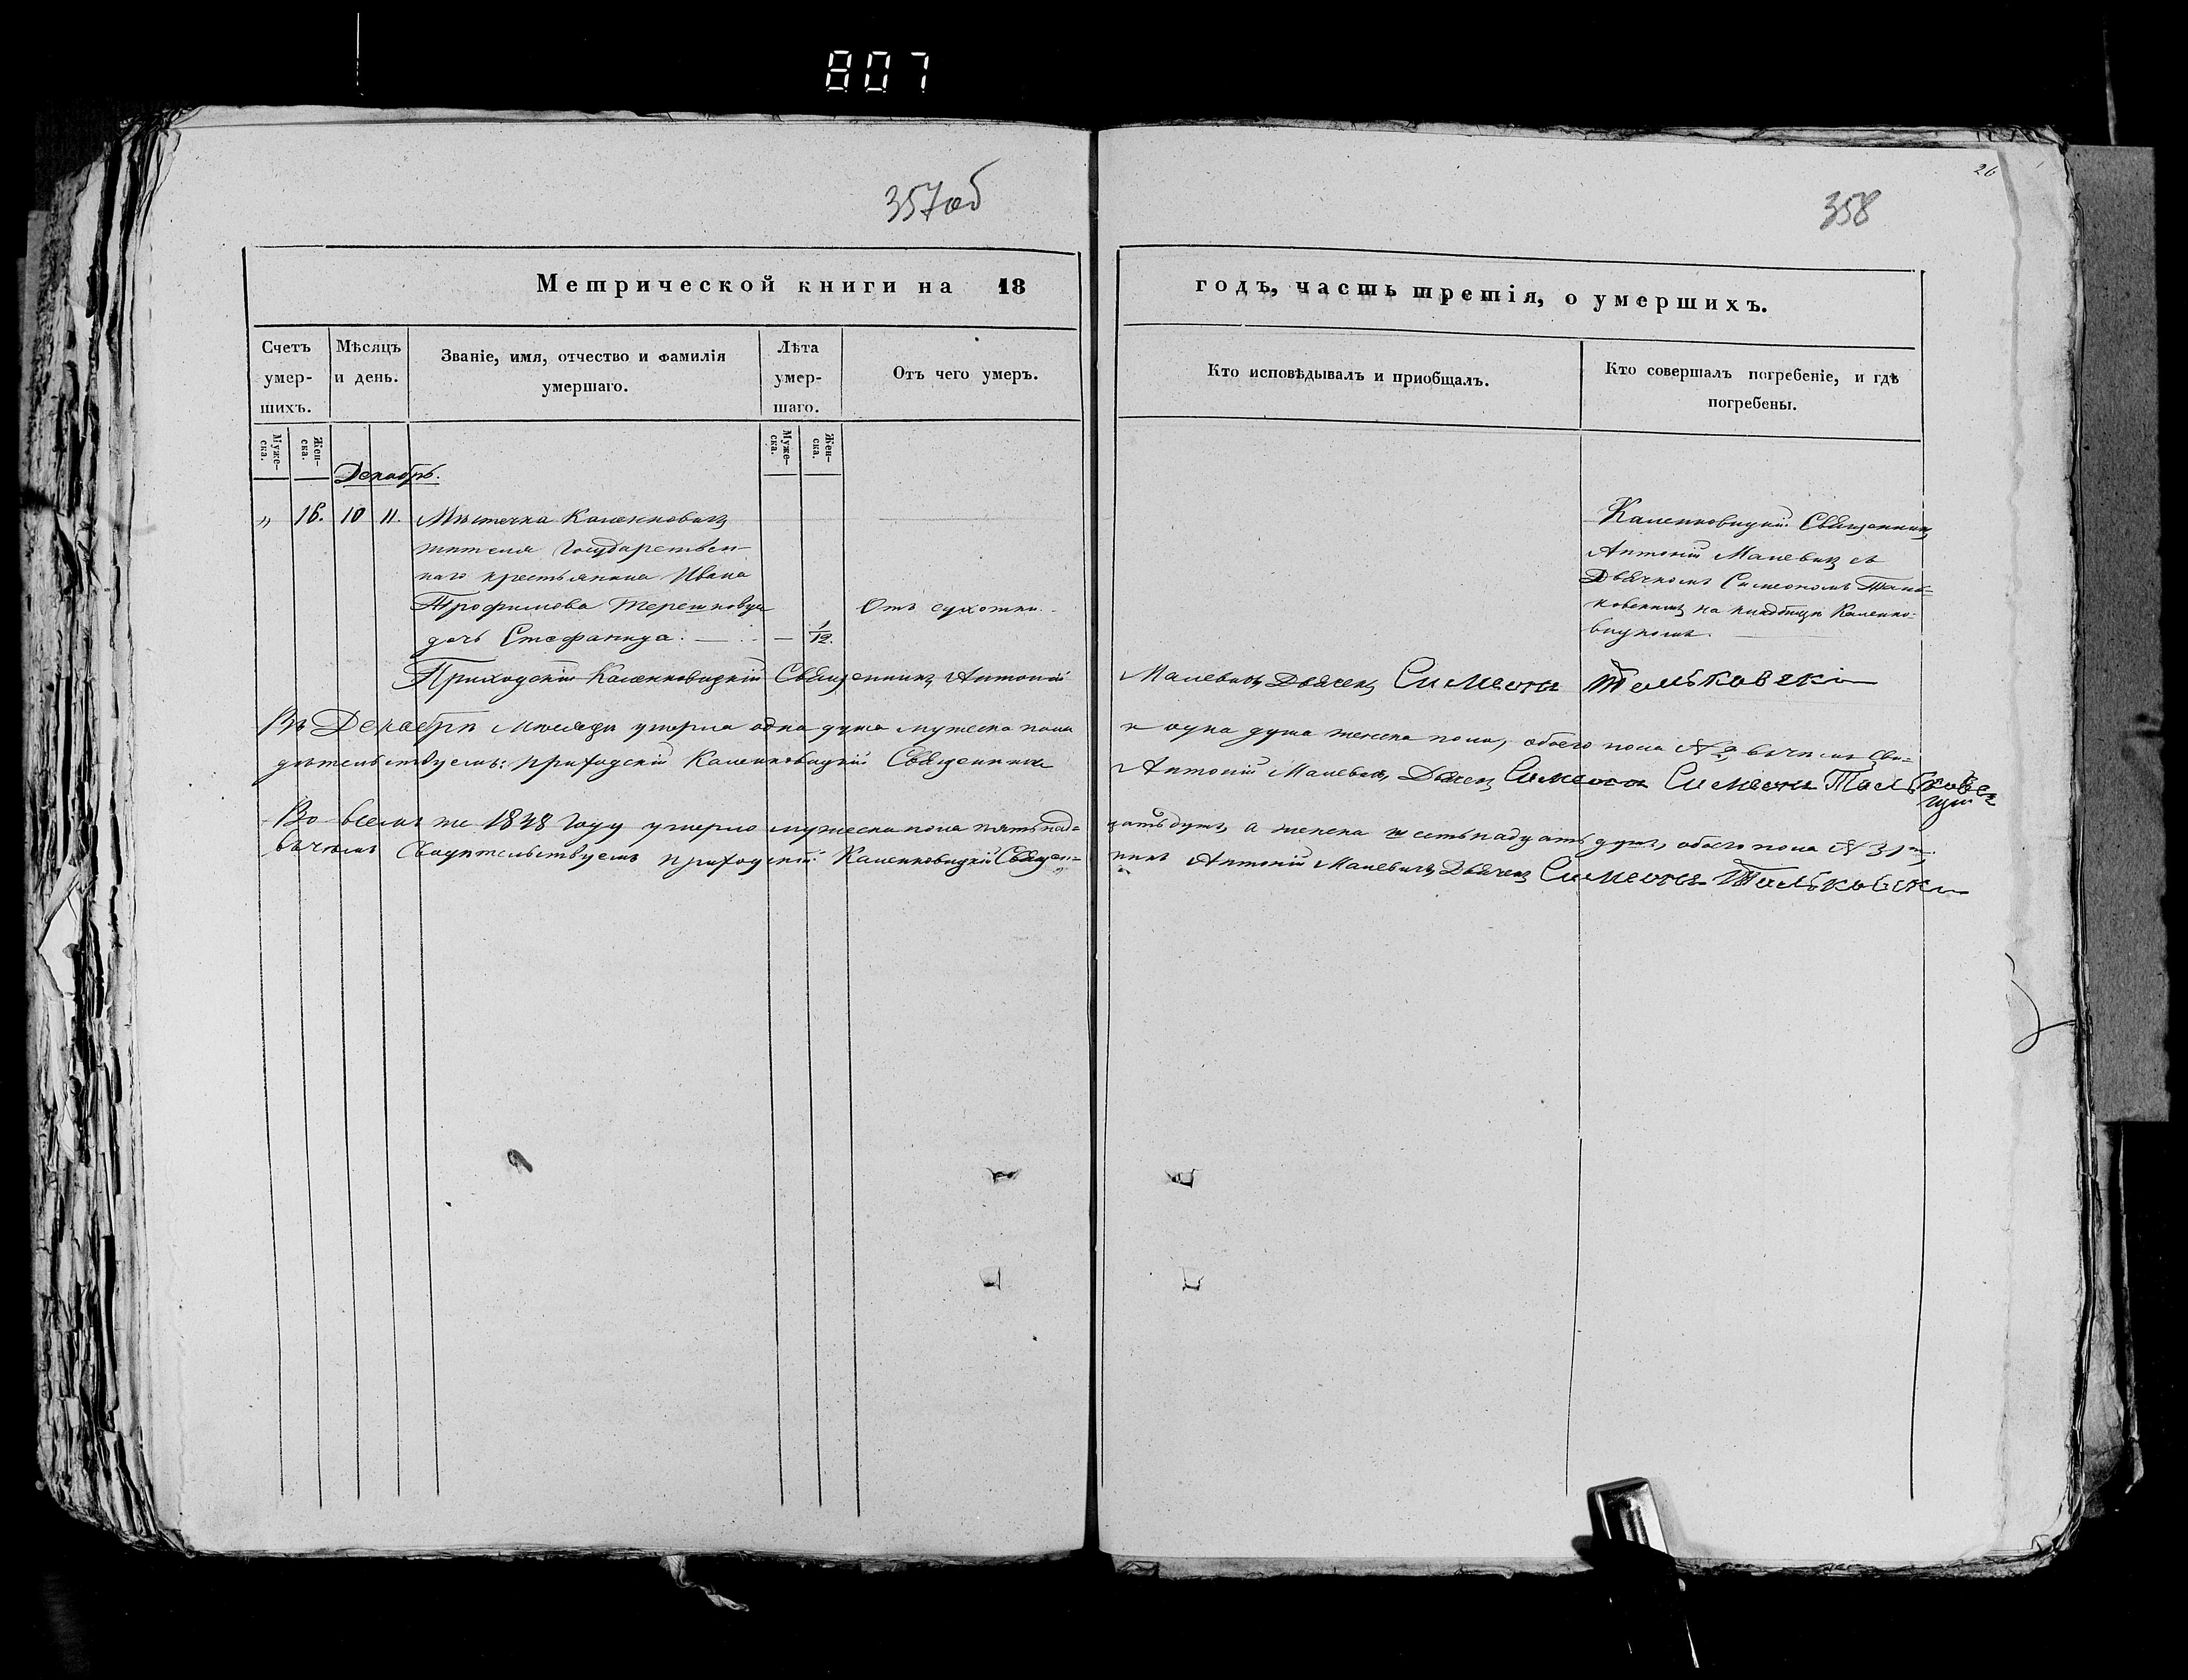 807
357 об
358
26
Метрической книги на 18
годъ, часть третія, о умершихъ.
Счетъ умер-шихъ.
Мѣсяцъ и день.
Званіе, имя, отчество и фамилія умершаго.
Лѣта умер-шаго.
Отъ чего умеръ.
Кто исповѣдывалъ и приобщалъ.
Кто совершалъ погребеніе, и гдѣ погребены.
Муже-ска.
Жен-ска.
Муже-ска.
Жен-ска.
Декабрь.
„ 16. 10 11. Мѣстечка Каленковичъ
жителя Государствен-
наго крестьянина Ивана
Трофимова Терешковца
дочь Стефанида. — 1/12.
Отъ сухотки.
Каленковицкій Священникъ
Антоній Малевичъ съ
Дьячкомъ Симеономъ Таль-
ковскимъ на кладбищѣ Каленко-
вицкомъ.
Приходскій Каленковицкій Священникъ Антоній
Малевичъ Дьячекъ Симеонъ Тальковскій
Въ Декабрѣ мѣсяцѣ умерла одна душа мужеска пола
и одна душа женска пола, обоего пола № 2 въ чемъ Сви-
дѣтельствуемъ: приходскій Каленковицкій Священникъ
Антоній Малевичъ Дьячекъ Симеонъ Симеонъ Тальковс
Во всемъ же 1838 году умерло мужеска пола пятьнад-
цать душъ, а женска шестьнадцать душъ, обоего пола № 31
въ чемъ Свидѣтельствуемъ приходскій Каленковицкій Священ-
никъ Антоній Малевичъ Дьячекъ Симеонъ Тальковскі